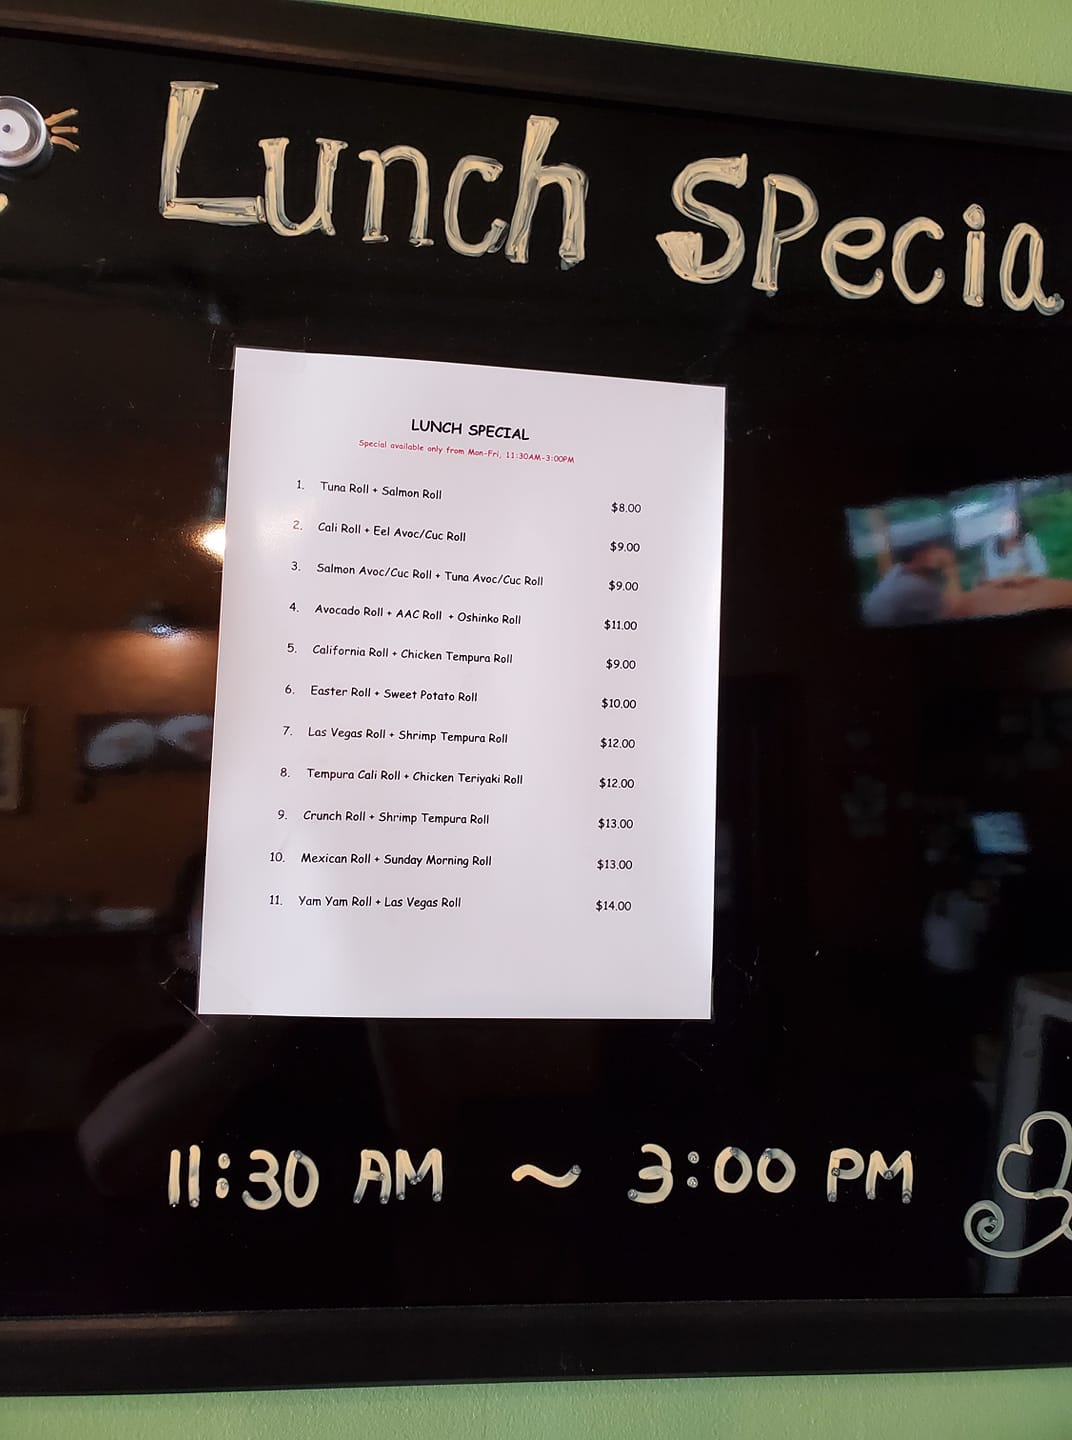 Lunch SPecia
LUNCH SPECIAL
Special available only from Mon-Fri, 11:30AM-3:00PM
1. Tuna Roll + Salmon Roll $8.00
2. Cali Roll + Eel Avoc/Cuc Roll $9.00
3. Salmon Avoc/Cuc Roll + Tuna Avoc/Cuc Roll $9.00
4. Avocado Roll + AAC Roll + Oshinko Roll $11.00
5. California Roll + Chicken Tempura Roll $9.00
6. Easter Roll + Sweet Potato Roll $10.00
7. Las Vegas Roll + Shrimp Tempura Roll $12.00
8. Tempura Cali Roll + Chicken Teriyaki Roll $12.00
9. Crunch Roll + Shrimp Tempura Roll $13.00
10. Mexican Roll + Sunday Morning Roll $13.00
11. Yam Yam Roll + Las Vegas Roll $14.00
11:30 AM ~ 3:00 PM